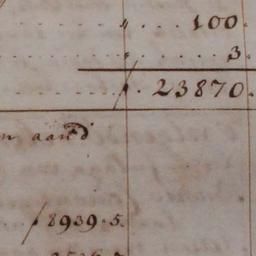 " . . . 100.
" . . . . . 3.
. . . . . . . . ƒ. 23870.
n aand
ƒ 8939.5.